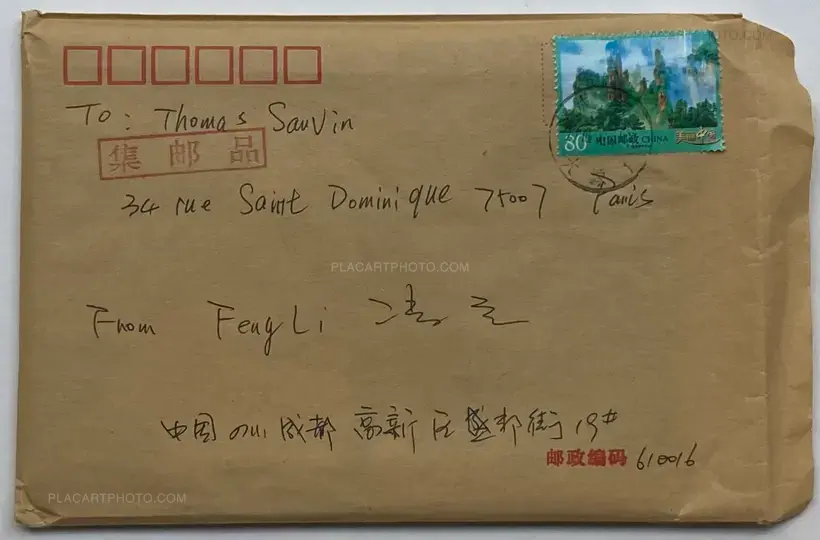 PLACARTPHOTO.COM
To: Thomas Sauvin
80分 中国邮政 CHINA
美丽中国
集邮品
34 rue Saint Dominique 75007 Paris
PLACARTPHOTO.COM
From Feng Li 冯立
中国四川成都高新区盛邦街19#
邮政编码 610016
PLACARTPHOTO.COM